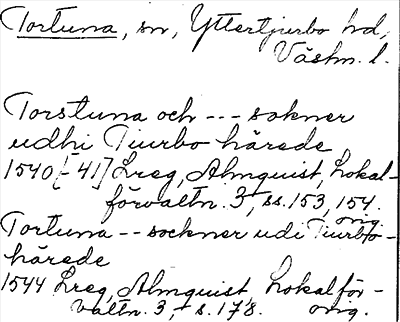 Tortuna, sn, Yttertjurbo hd,
Västm. l.
Torstuna och --- sokner
udhi Tiurbo härede
1540[-41] Lreg, Almquist, Lokal-
förvaltn. 3, ss. 153, 154.
orig.
Tortuna -- sockner udi Tiurbo-
härede
1544 Lreg, Almquist, Lokalför-
valtn. 3, s. 178. orig.